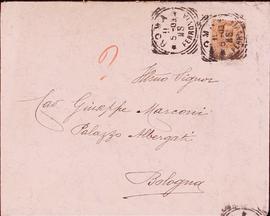 ROMA
FERROVIA
?
Illmo Signor
Cav. Giuseppe Marconi
Palazzo Albergati
Bologna